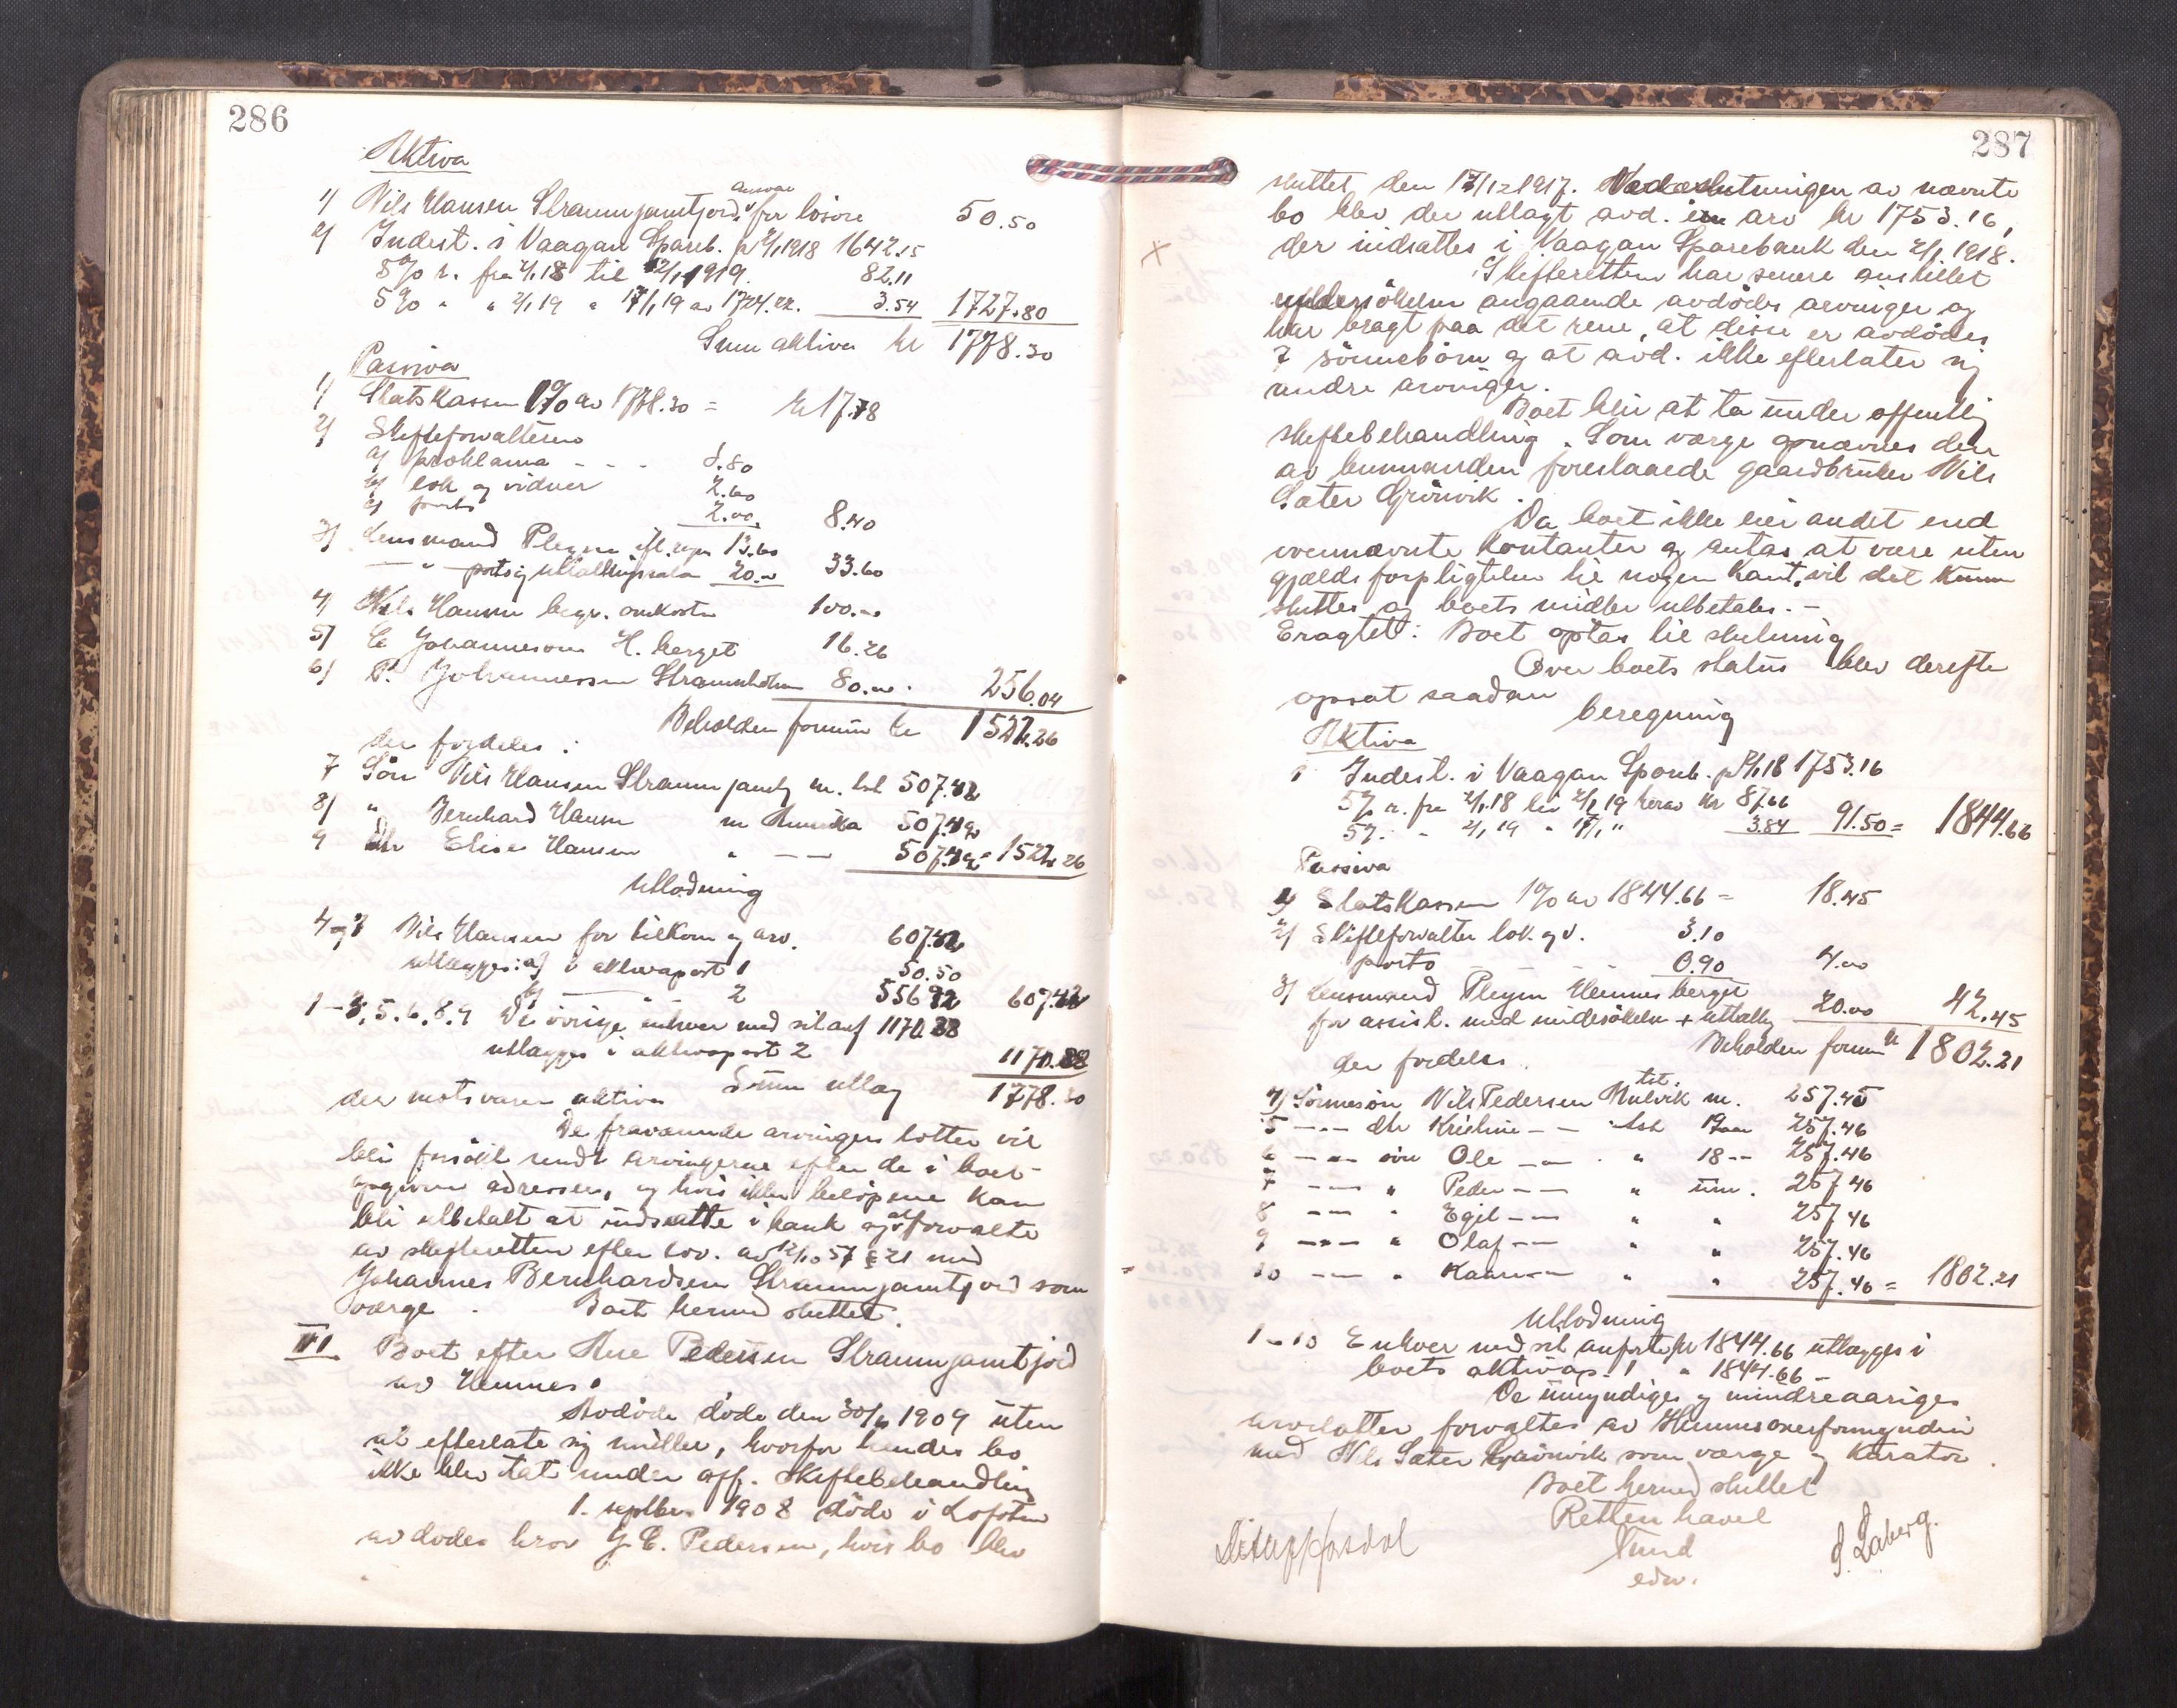 286
Aktiva
1) Nils Hansen Straumjamtjord ansvar for løsøre 50.50
2) Indest. i Vaagan Spareb. p 2/1 1918 1642.15
5% r. fra 2/1 18 til 2/1 1919. 82.11
5% " " 2/1 19 " 17/1 19 av 1724.xx. 3.54 1727.80
Sum aktiva kr 1778.30
Passiva
1) Statskassen 1% av 1778.30 = kr 17.78
2) Skifteforvalteren
a) proklama - - - 3.80
b) lok og vidner 2.60
c) porto 2.00 8.40
3) Lensmand Pleym ifl. regn 13.60
— " — ports og utbetalingssala 20.00 33.60
4) Nils Hansen begr. omkostn 100.00
5) C Johannesen H. berget 16.26
6) P. Johannessen Straumholm 80.00. 256.04
Beholden formue kr 1522.26
der fordeles:
7 Søn Nils Hansen Straumjamtj m. tst 507.42
8) " Bernhard Hansen m Amerika 507.42
9 dtr Elise Hansen " — — 507.42 = 1522.26
Utlodning
4 og 7 Nils Hansen for tilkom og arv. 607.42
utlægges: a) i aktivapost 1 50.50
b) — " — 2 556.92 607.42
1-3, 5.6.8.9 De øvrige enhver med sit anf 1170.88
utlægges i aktivapost 2 1170.88
Sum utlæg 1778.30
der motsvarer aktiva
De fraværende arvingers lotter vil
bli forsøkt sendt arvingerne efter de i boet
opgivne adresser, og hvis ikke beløpene kan
bli utbetalt at indsætte i bank og at forvalte
av skifteretten efter lov. av 12/10 57 § 21 med
Johannes Bernhardsen Straumjamtjord som
værge. Boet hermed sluttet.
III Boet efter Ane Pedersen Straumjamtjord
av Hemnes.
Avdøde døde den 30/6 1909 uten
at efterlate sig midler, hvorfor hendes bo
ikke blev tat under off. skiftebehandling
1. septbr. 1908 døde i Lofoten
avdødes bror J. C. Pedersen, hvis bo blev
287
sluttet den 17/12 1917. Ved avslutningen av nævnte
bo blev der utlagt avd. en arv kr 1753.16,
der indsattes i Vaagan Sparebank den 2/1 1918.
x
Skifteretten har senere anstillet
undersøkelser angaaende avdødes arvinger og
har bragt paa det rene, at disse er avdødes
7 sønnebørn og at avd. ikke efterlater sig
andre arvinger.
Boet blir at ta under offentlig
skiftebehandling. Som værge opnævnes den
av lensmanden foreslaaede gaardbruker Nils
Sæter Grønvik.
Da boet ikke eier andet end
ovennævnte kontanter og antas at være uten
gjældsforpligtelser til nogen kant, vil det kunne
sluttes og boets midler utbetales. -
Eragtet: Boet optas til slutning
Over boets status blev derefter
opsat saadan
beregning
Aktiva
1 Indest. i Vaagan Spareb. p 2/1 18 1753.16
5% r. fra 2/1 18 til 2/1 19 herav kr 87.66
5% - - 2/1 19 - 17/1 " 3.84 91.50 = 1844.66
Passiva
1) Statskassen 1% av 1844.66 = 18.45
2) Skifteforvalter lok. og v. 3.10
porto - - 0.90 4.00
3) Lensmand Pleym Hemnesberget
for assist. med undersøkelse + utbetaling 20.00 42.45
Beholden formue kr 1802.21
der fordeles.
4) Sønnesøn Nils Pedersen Hulvik tst. m. 257.45
5 --- dtr Kristine — — tst 19 aar 257.46
6 --- søn Ole — — . " 18 -- 257.46
7 --- " Peder — — " um. 257.46
8 --- " Egil — — " " 257.46
9 --- " Olaf — — " " 257.46
10 --- " Kaare — — " " 257.46 = 1802.21
Utlodning
1-10 Enhver med sit anførte kr 1844.66 utlægges i
boets aktivap. 1 " 1844.66 -
De umyndiges og mindreaariges
arvelotter forvaltes av Hemnes overformynderi
med Nils Sæter Grønvik som værge og kurator.
Boet hermed sluttet
Retten hævet
Lund
edv.
S. Laberg.